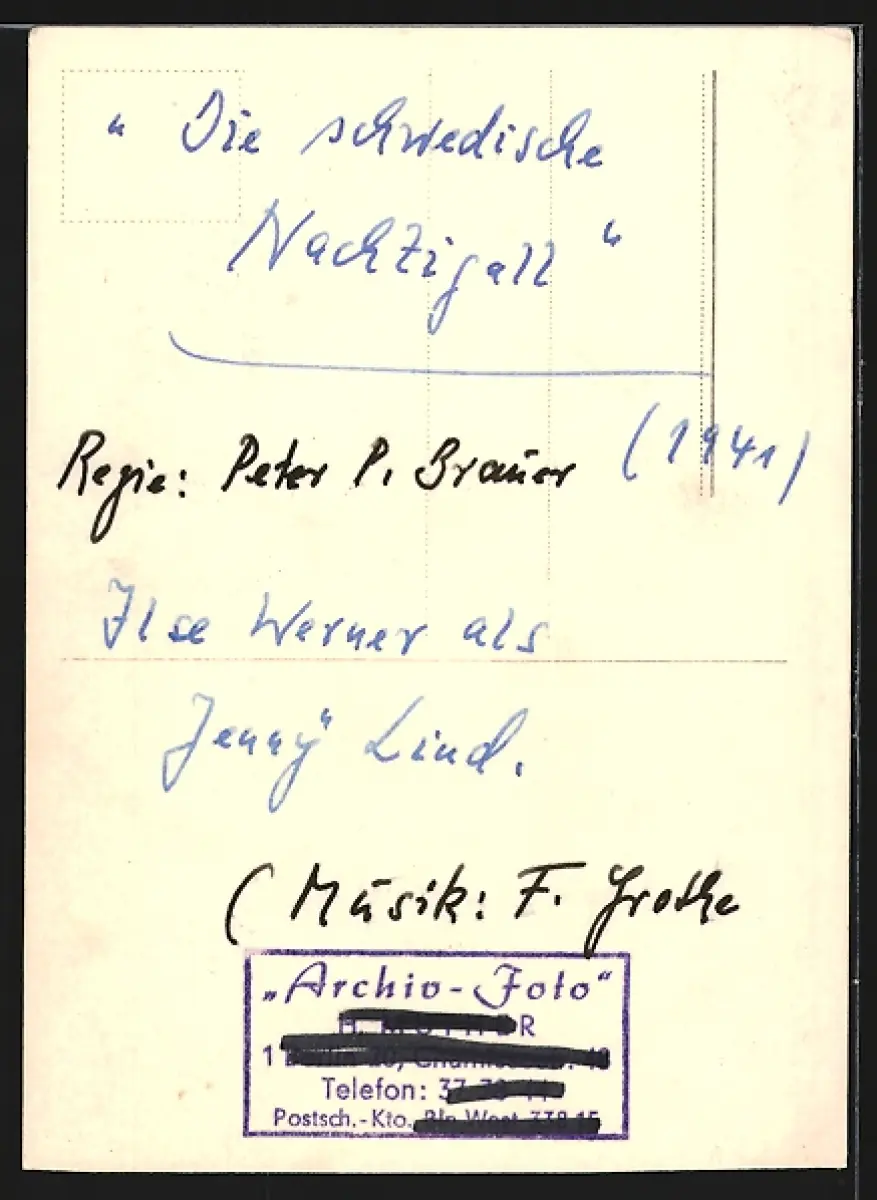 " Die schwedische
Nachtigall "
Regie: Peter P. Brauer (1941)
Ilse Werner als
Jenny Lind.
( Musik: F. Grothe
„Archiv-Foto“
R
1
Telefon: 37
Postsch.-Kto.